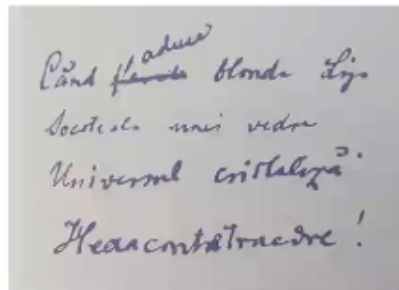 Când aduce blonda Lyga
Socoteala unei vedre
Universul cristaliză
Hexacontatraedre!